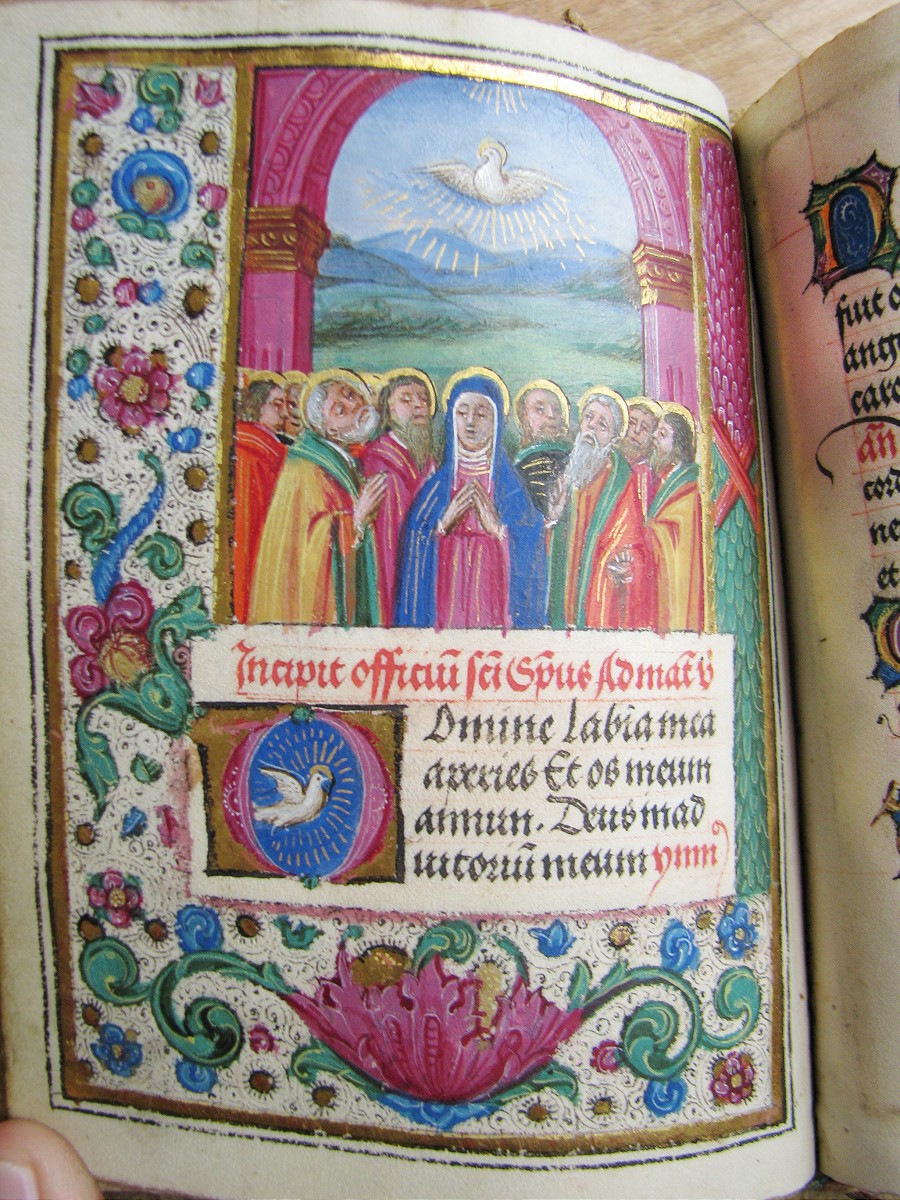 Incipit officiū sc̄i Sp̄us Ad mat̄ v̄
Dmine labia mea
aperies Et os meum
annun. Deus in ad
iutoriū meum ymn⁹
fiut
an̄
cord
ne
et